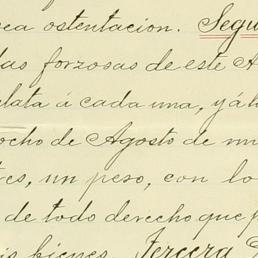 ostentacion. Segu
das forzosas de este A
plata á cada una, y á l
ocho de Agosto de mi
es, un peso, con lo
de todo derecho que p
is bienes. Tercera